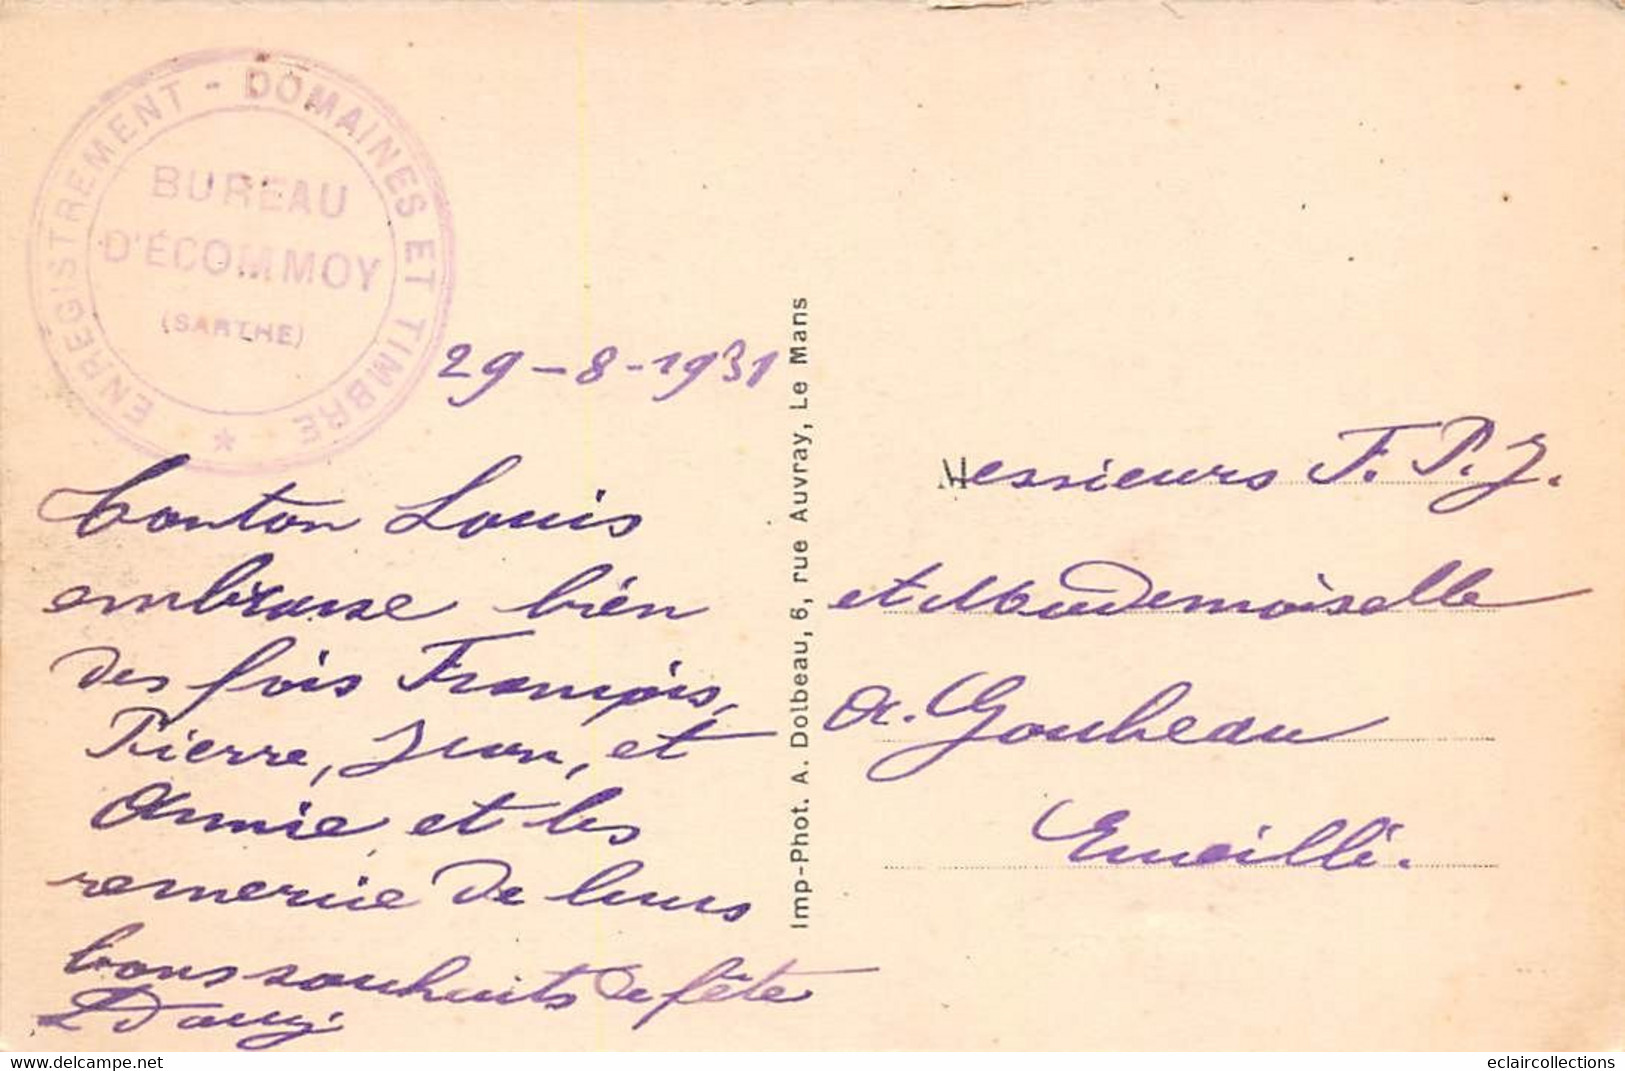 ENREGISTREMENT - DOMAINES ET TIMBRE *
BUREAU
D'ÉCOMMOY
(SARTHE)
29-8-1931
Tonton Louis
embrasse bien
des fois François,
Pierre, Jean, et
Annie et les
remercie de leurs
bons souhaits de fête
Imp-Phot. A. Dolbeau, 6, rue Auvray, Le Mans
Messieurs F. P. J.
et Mademoiselle
A. Goubeau
Eméillé.
www.delcampe.net
eclaircollections